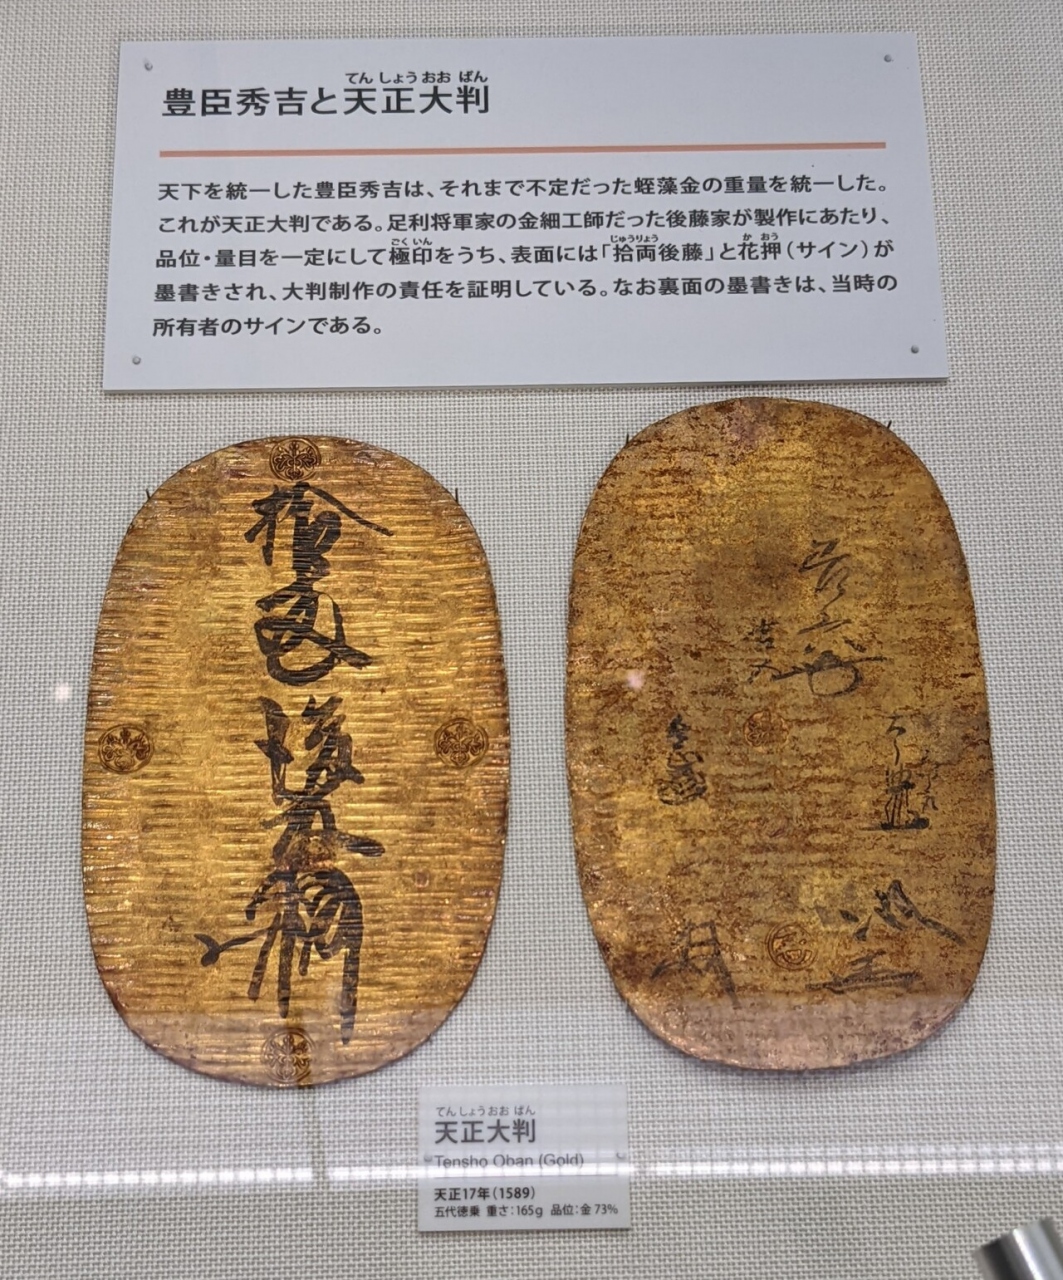 てんしょうおおばん
豊臣秀吉と天正大判
天下を統一した豊臣秀吉は、それまで不定だった蛭藻金の重量を統一した。
これが天正大判である。足利将軍家の金細工師だった後藤家が製作にあたり、
ごくいん じゅうりょう かおう
品位・量目を一定にして極印をうち、表面には「拾両後藤」と花押(サイン)が
墨書きされ、大判制作の責任を証明している。なお裏面の墨書きは、当時の
所有者のサインである。
拾両
後藤
てんしょうおおばん
天正大判
Tensho Oban (Gold)
天正17年(1589)
五代徳乗 重さ:165g 品位:金73%